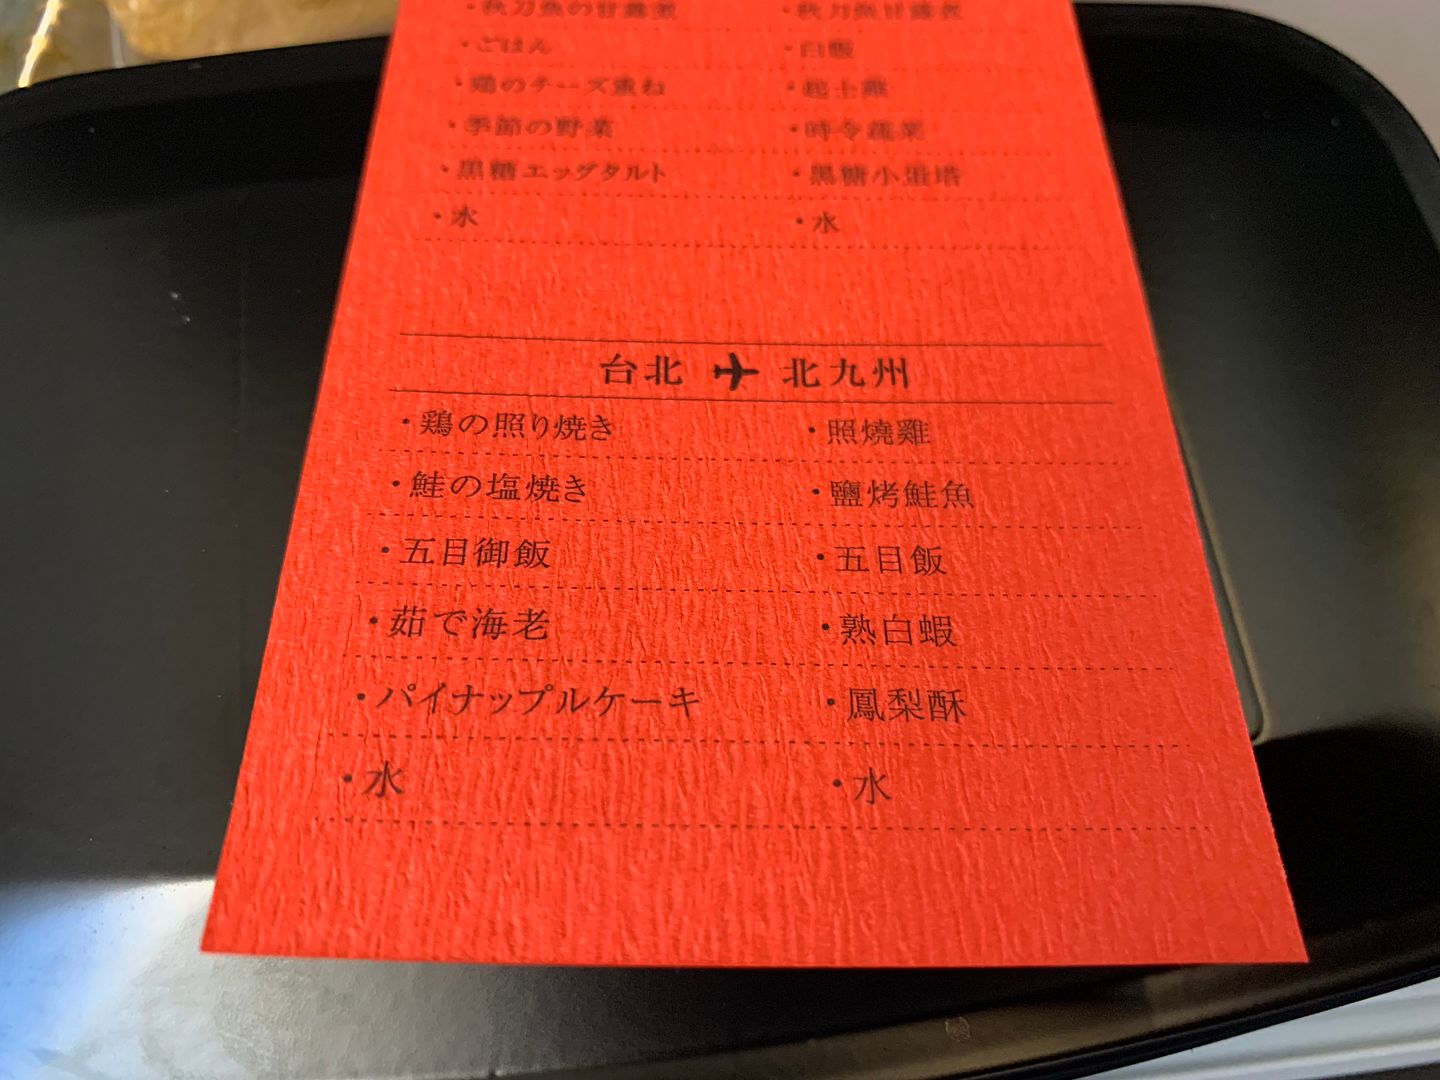 ・秋刀魚の甘露煮 ・秋刀魚甘露煮
・ごはん ・白飯
・鶏のチーズ重ね ・起士雞
・季節の野菜 ・時令蔬菜
・黒糖エッグタルト ・黑糖小蛋塔
・水 ・水
台北 ✈ 北九州
・鶏の照り焼き ・照燒雞
・鮭の塩焼き ・鹽烤鮭魚
・五目御飯 ・五目飯
・茹で海老 ・熟白蝦
・パイナップルケーキ ・鳳梨酥
・水 ・水